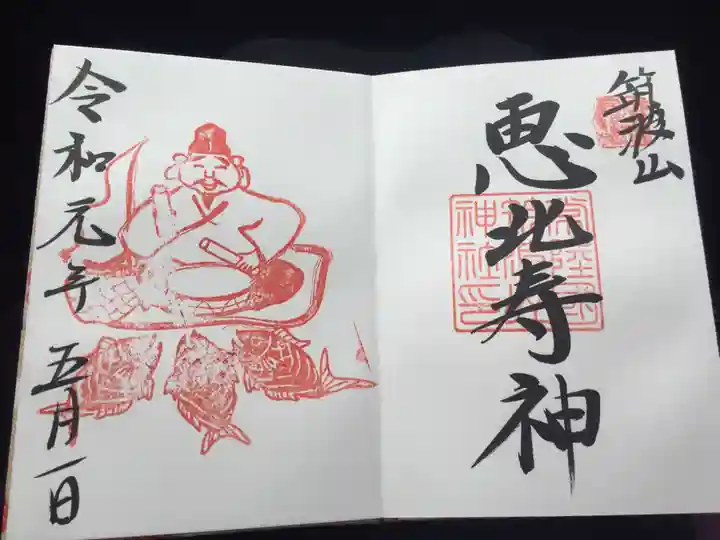 筑波山
恵比寿神
常陸國
神社印
令和元年五月一日